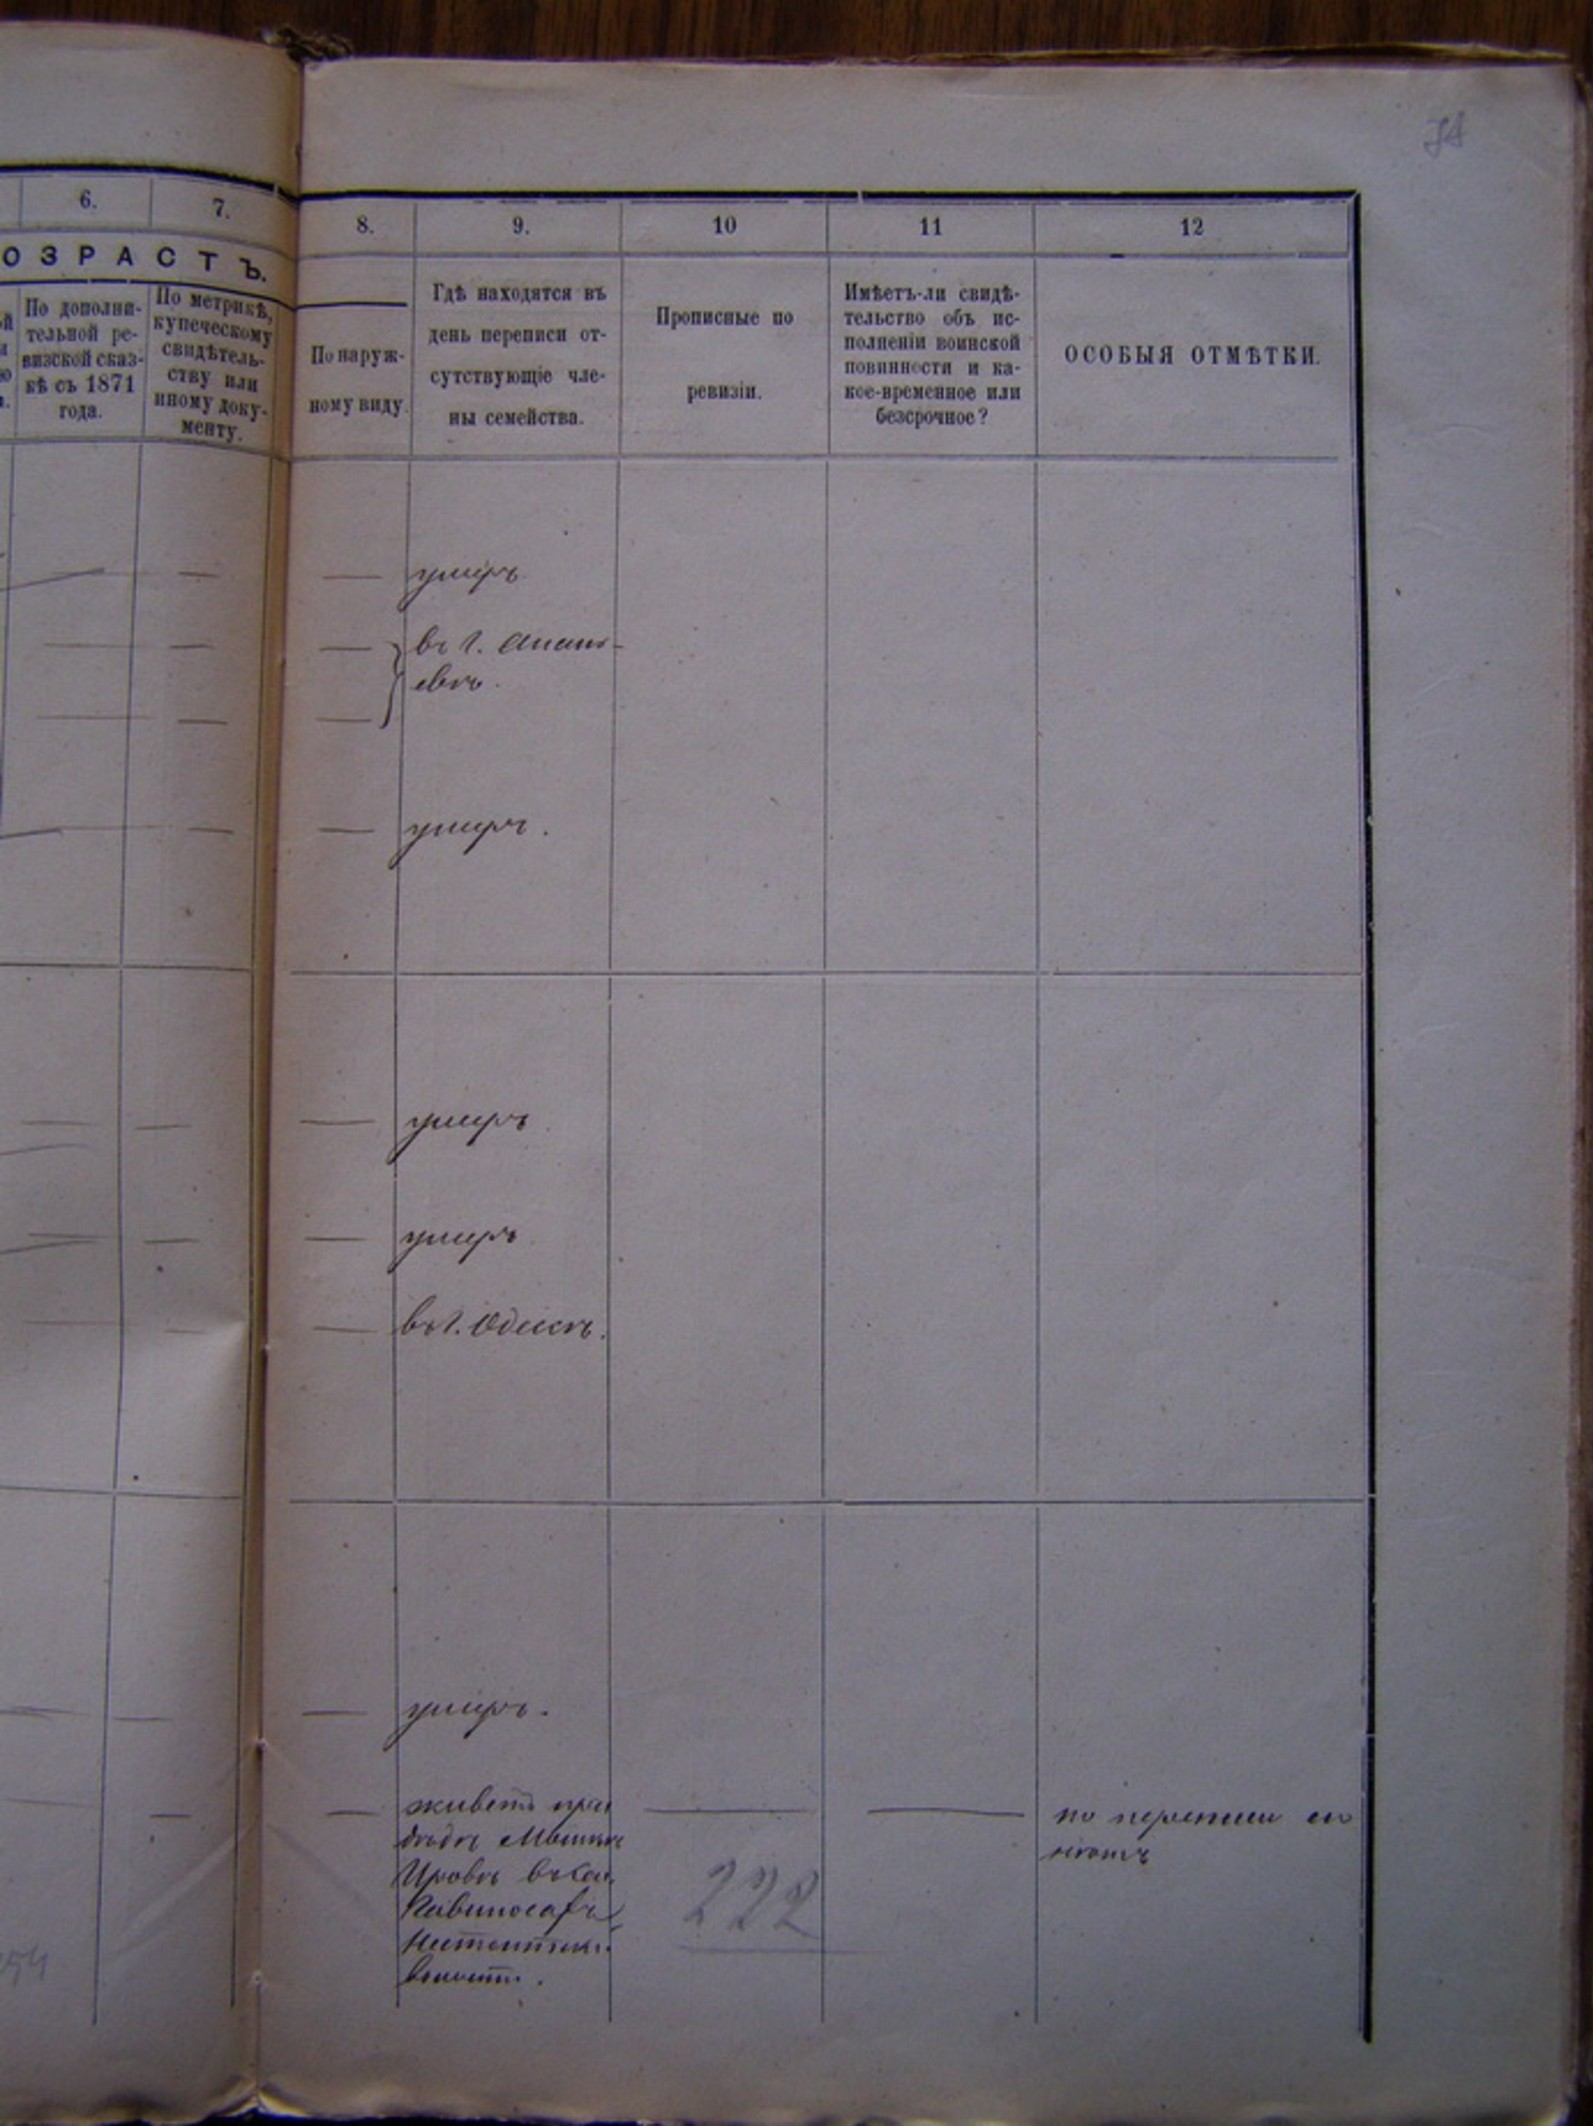 6.
7.
8.
9.
10
11
12
ОЗРАСТЪ.
По дополни-
тельной ре-
визской сказ-
кѣ съ 1871
года.
По метрикѣ,
купеческому
свидѣтель-
ству или
иному доку-
менту.
По наруж-
ному виду.
Гдѣ находятся въ
день переписи от-
сутствующіе чле-
ны семейства.
Прописные по
ревизіи.
Имѣетъ-ли свидѣ-
тельство объ ис-
полненіи воинской
повинности и ка-
кое-временное или
безсрочное?
ОСОБЫЯ ОТМѢТКИ.
умеръ
въ г. Анань-
евѣ.
умеръ.
умеръ
умеръ
въ г. Одессѣ.
умеръ.
живетъ при
дядѣ
въ
волости.
222
по